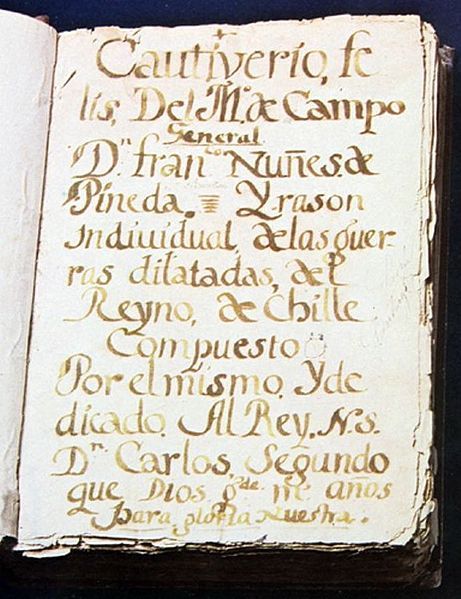 Cautiverio, fe
lis, Del M.º de Campo
General
D.n fran.co Nuñes. de
Pineda. Y rason
indiuidual, de las guer-
ras dilatadas, del
Reyno, de Chille
Compuesto
Por el mismo, Y de
dicado. Al Rey. N. s.
D.n Carlos, Segundo
que Dios g.de ms años
Para gloria Nuestra.